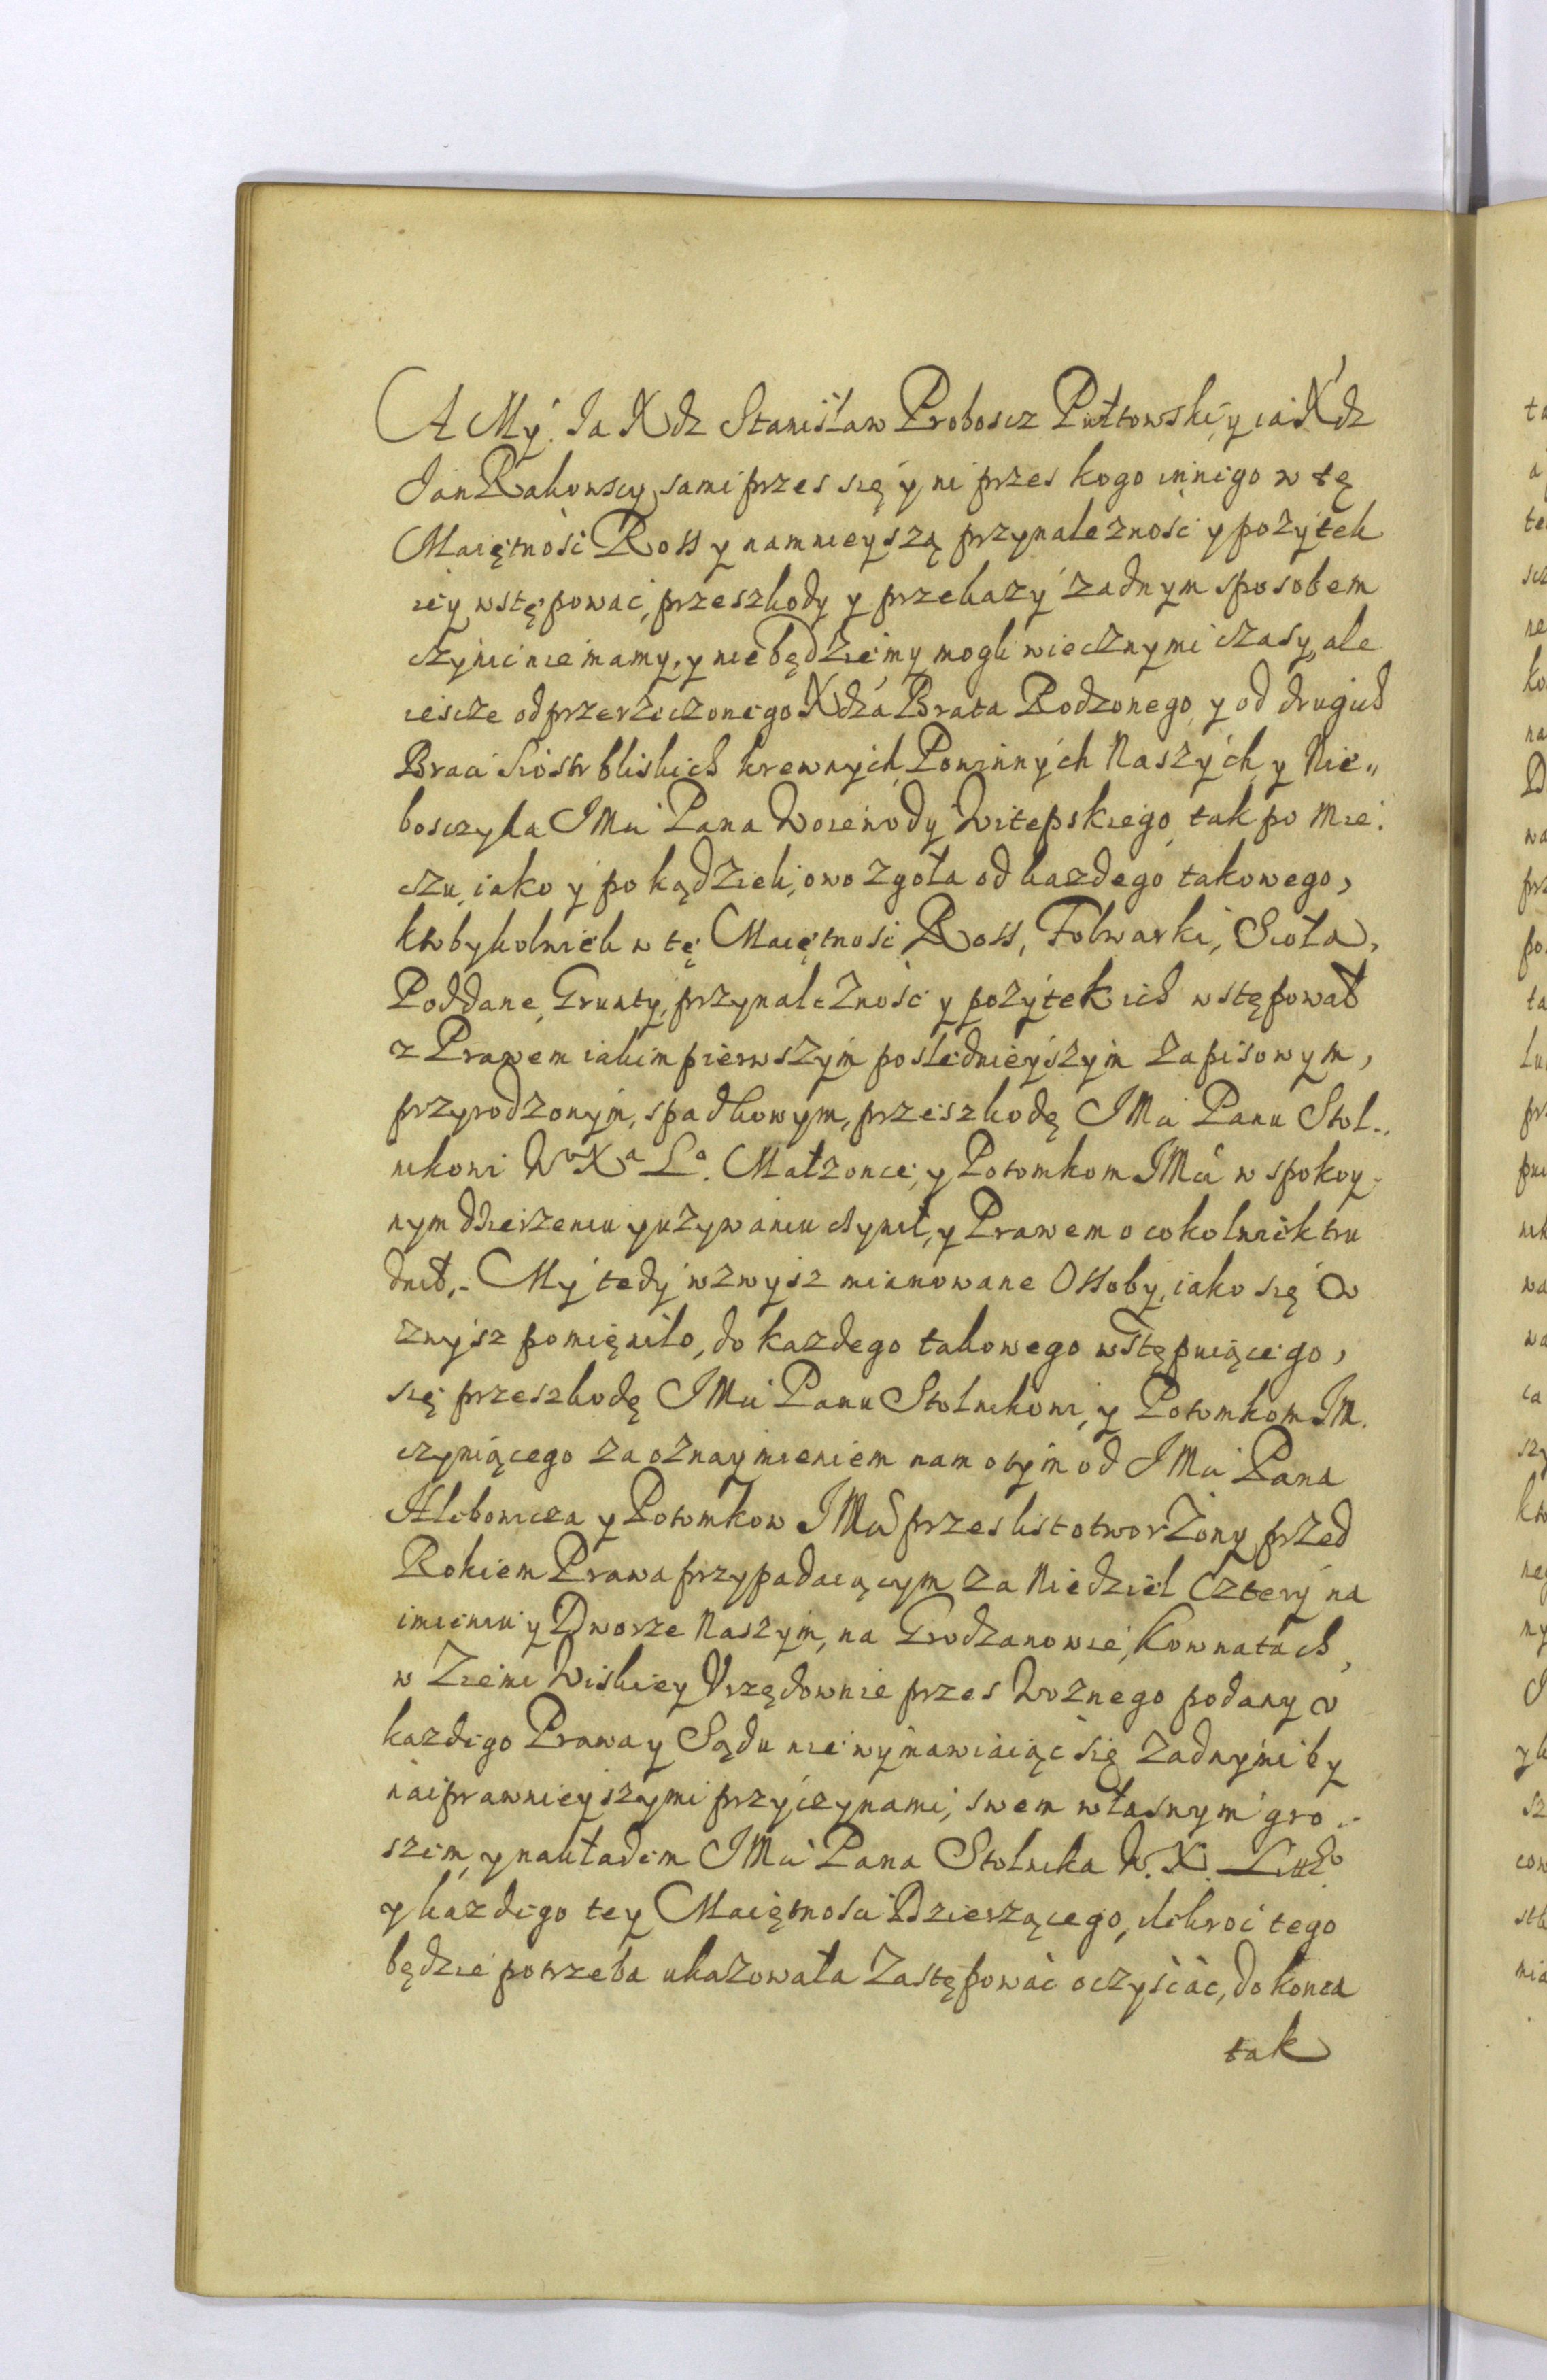 A My. Ja Xdz Stanisław Proboscz Pułtowski, y ia Xdz
Jan Rakowscy, sami przes się y ni przes kogo innego w tę
Maiętność Ross y namnieyszą przynalezność y pożytek
iey wstępować, przeszkody y przekazy żadnym sposobem
czynić nie mamy, y nie będziemy mogli wiecznymi czasy, ale
iescze od przerzeczonego Xdza Brata Rodzonego y od drugich
Braci Siostr bliskich krewnych Powinnych Naszych, y Nie„
bosczyka JMci Pana Woiewody Witepskiego tak po Mie:
czu, iako y po kądzieli, owo zgoła od kazdego takowego,
ktobykolwiek w tę Maiętność Ross, Folwarki, Sioła,
Poddane, Grunty, przynależność y pożytek ich wstępował
z Prawem iakim pierwszym poslednieyszym zapisowym,
przyrodzonym, spadkowym, przeszkodę JMci Panu Stol..
nikowi Wo Xa Lo. Małzonce, y Potomkom JMci w spokoy-
nym dzierzeniu y uzywaniu czynił, y Prawem o cokolwiek tru
dnił,- My tedy wzwysz mianowane Ossoby, iako się w
zwysz pomięniło, do kazdego takowego wstępuiącego,
się przeszkodę JMci Panu Stolnikowi, y Potomkom JM.
czyniącego za oznaymieniem nam o tym od JMci Pana
Hlebowicza y Potomkow JMci przes list otworzony, przed
Rokiem Prawa przypadaiącym za Niedziel Cztery na
imieniu y Dworze Naszym, na Grodzanowie, Kownatach,
w Ziemi Wiskiey Vrzędownie przes Woznego podany v
kazdego Prawa y Sądu nie wymawiaiąc się żadnymi by
naiprawnieyszymi przyczynami, swem własnym gro.-
szem, y nakładem JMci Pana Stolnika W. X. Litto
y kazdego tey Maiętnosci Dzierzącego, ilekroć tego
będzie potrzeba ukazowała Zastępować oczyściać, do konca
tak